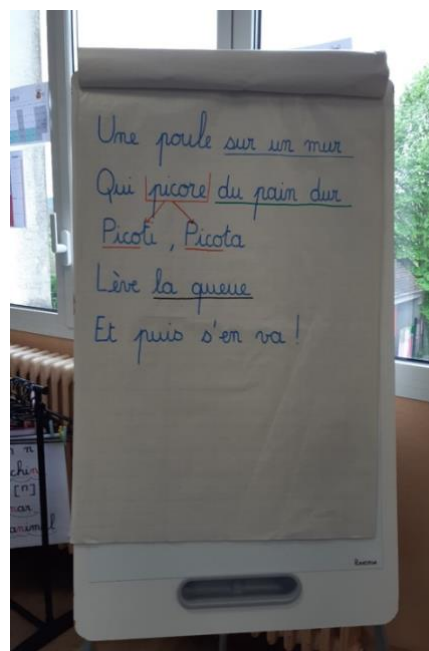 Une poule sur un mur
Qui picore du pain dur
Picoti, Picota
Lève la queue
Et puis s'en va !
n n
[n]
animal